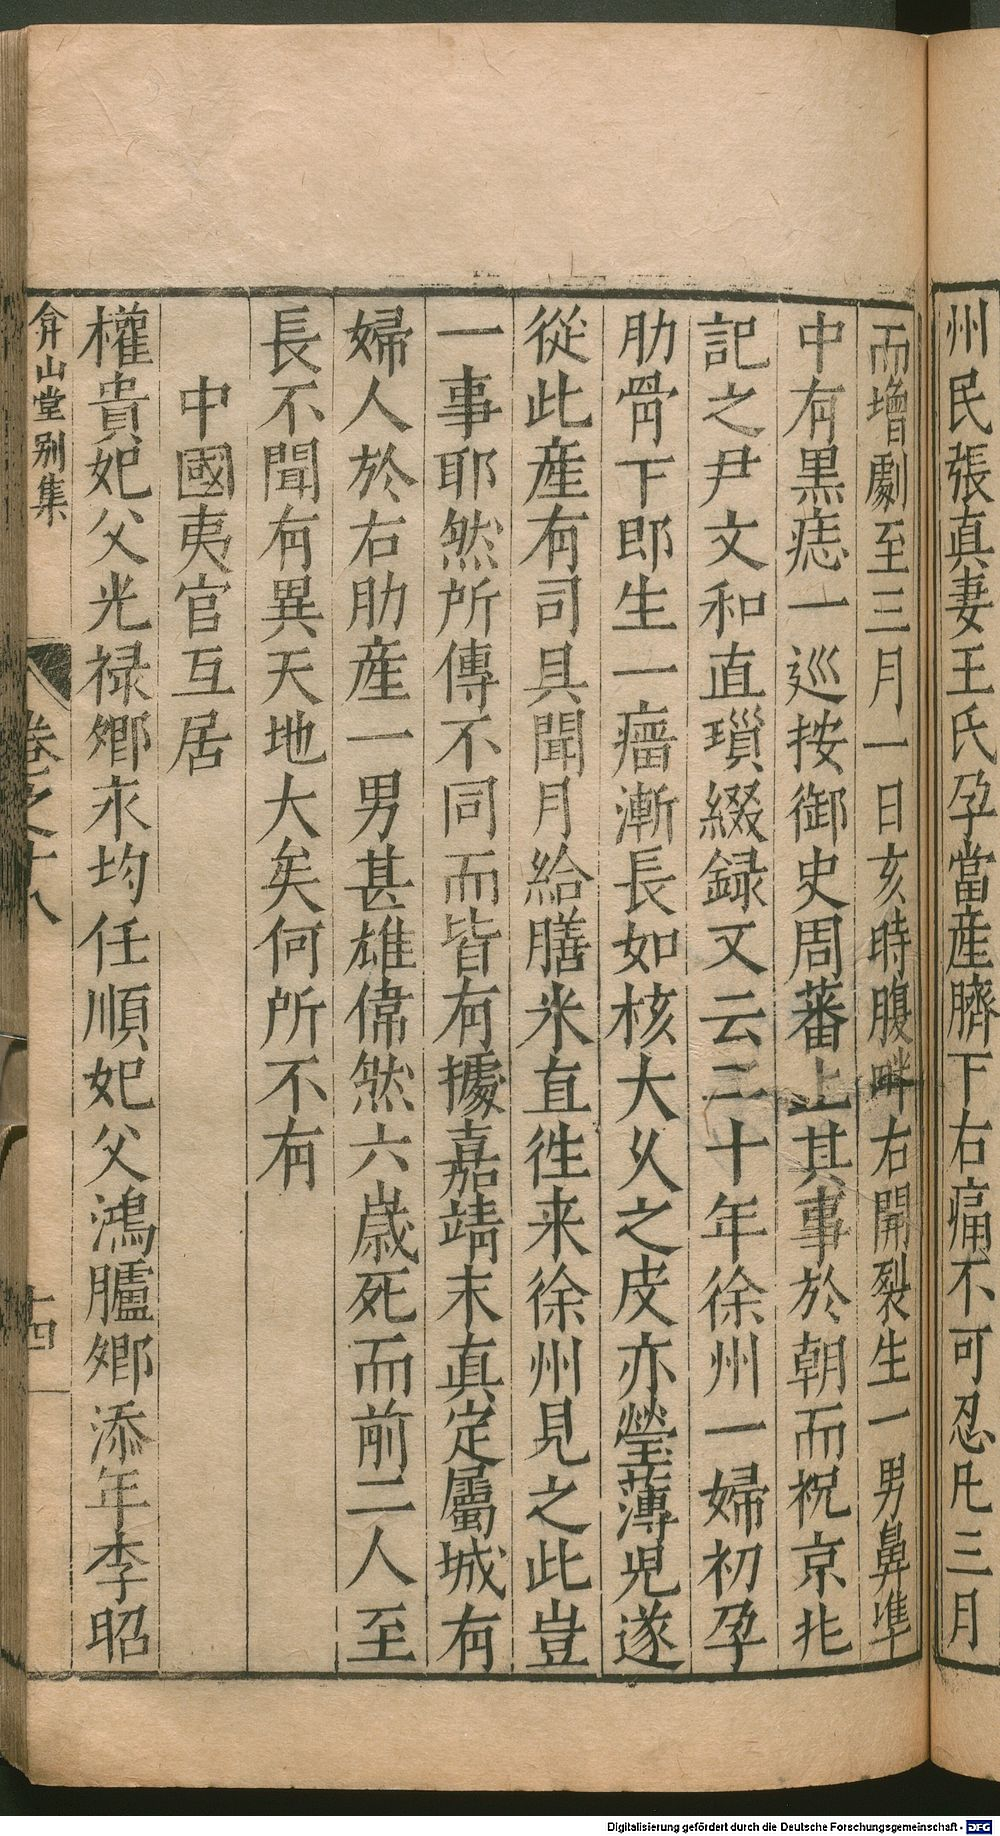 州民張真妻王氏孕當産臍下右痛不可忍凡三月
而增劇至三月一日亥時腹畔右開裂生一男鼻準
中有黒痣一巡按御史周蕃上其事於朝而祝京兆
記之尹文和直瑣綴録又云二十年徐州一婦初孕
肋骨下即生一瘤漸長如核大乆之皮亦瑩薄児遂
從此産有司具聞月給膳米直徃来徐州見之此豈
一事耶然所傳不同而皆有據嘉靖末真定屬城有
婦人於右肋産一男甚雄偉然六嵗死而前二人至
長不聞有異天地大矣何所不有
中國夷官互居
權貴妃父光禄卿永均任順妃父鴻臚卿添年李昭
弇山堂别集
卷之十八
十四
Digitalisierung gefördert durch die Deutsche Forschungsgemeinschaft - DFG